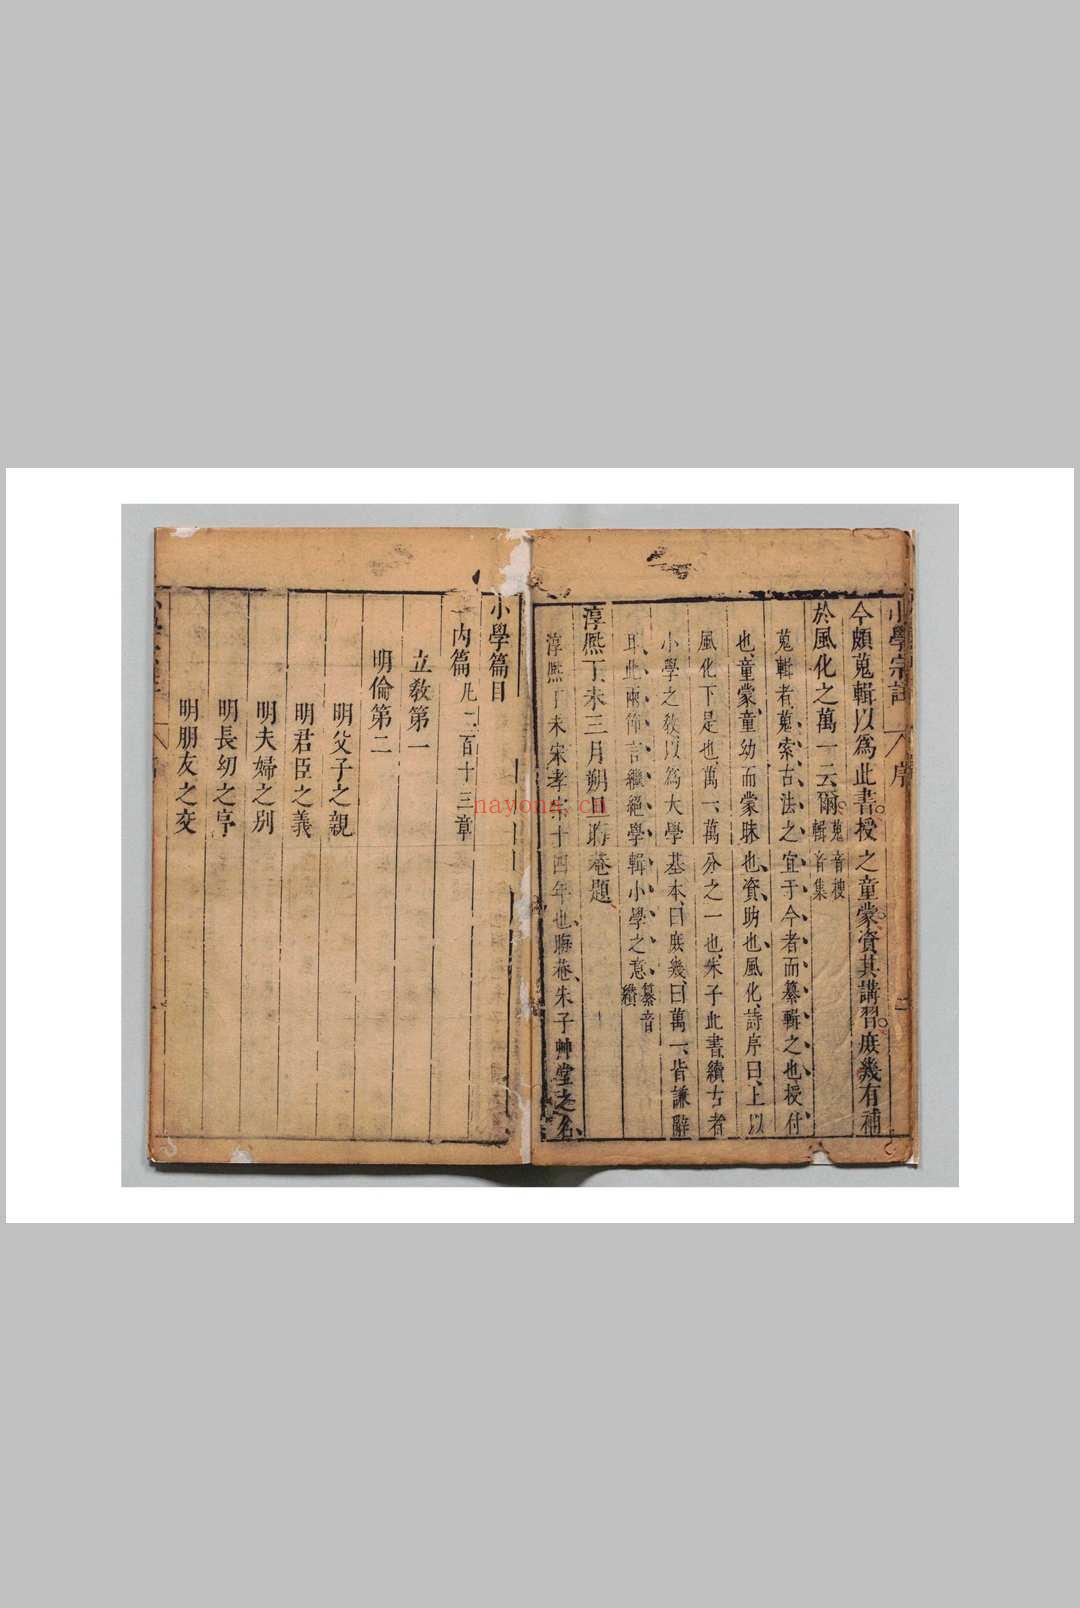 小學宗註 序 二
今頗蒐輯以爲此書。授之童蒙。資其講習。庶幾有補
於風化之萬一云爾。蒐音搜輯音集
蒐輯者、蒐索古法之宜于今者而纂輯之也、授付
也、童蒙、童幼而蒙昧也、資、助也、風化、詩序曰、上以
風化下是也、萬一、萬分之一也、朱子此書、續古者
小學之教、以爲大學基本、曰庶幾、曰萬一、皆謙辭
耳、此兩節言繼絕學輯小學之意、纂音纘
淳熈丁未三月朔旦晦菴題
淳熈丁未宋孝宗十四年也、晦菴、朱子艸堂之名、
小學篇目
内篇凡二百十三章
立敎第一
明倫第二
明父子之親
明君臣之義
明夫婦之別
明長幼之序
明朋友之交
nayona.cn